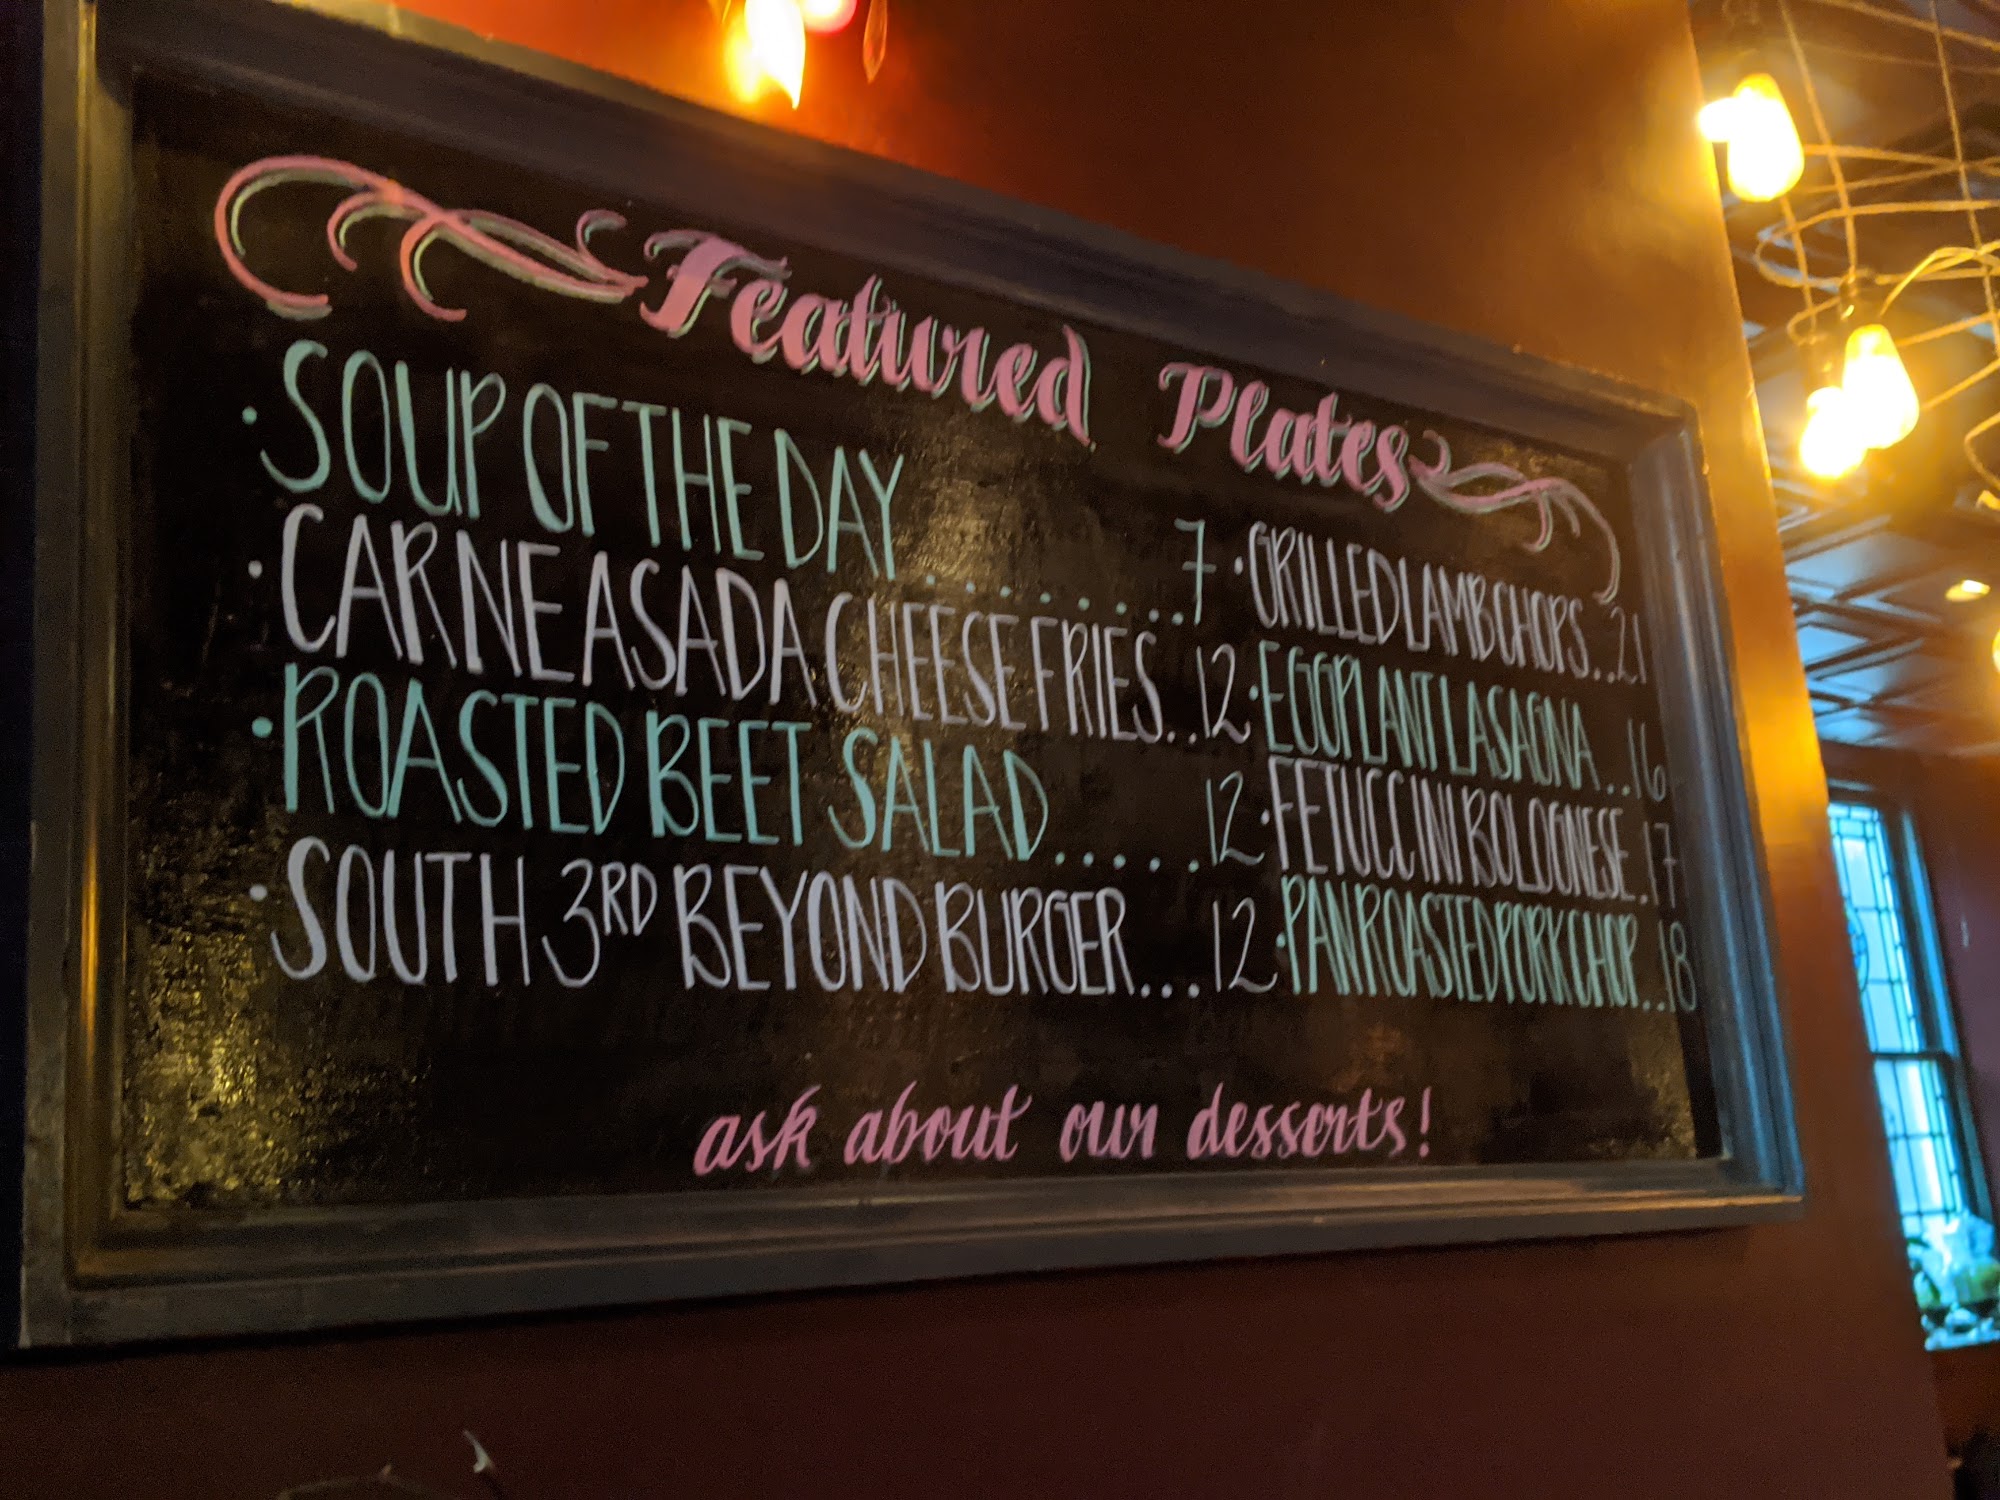 Featured Plates
• SOUP OF THE DAY ......... 7
• CARNE ASADA CHEESE FRIES..12
• ROASTED BEET SALAD......12
• SOUTH 3RD BEYOND BURGER...12
• GRILLED LAMB CHOPS..21
• EGGPLANT LASAGNA..16
• FETUCCINI BOLOGNESE.17
• PAN ROASTED PORK CHOP..18
ask about our desserts!